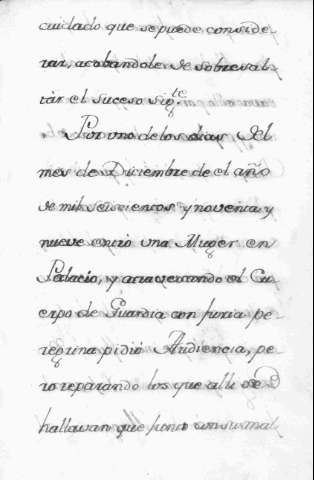 cuidado que se puede conside-
rar, acabandole de sobresal-
tar el suceso sig.te
Por uno de los dias del
mes de Diciembre de el año
de mil seiscientos y noventa y
nueve entró una Muger en
Palacio, y atravesando el Cu-
erpo de Guardia con furia pe-
regrina pidió Audiencia, pe-
ro reparando los que alli se
hallavan que